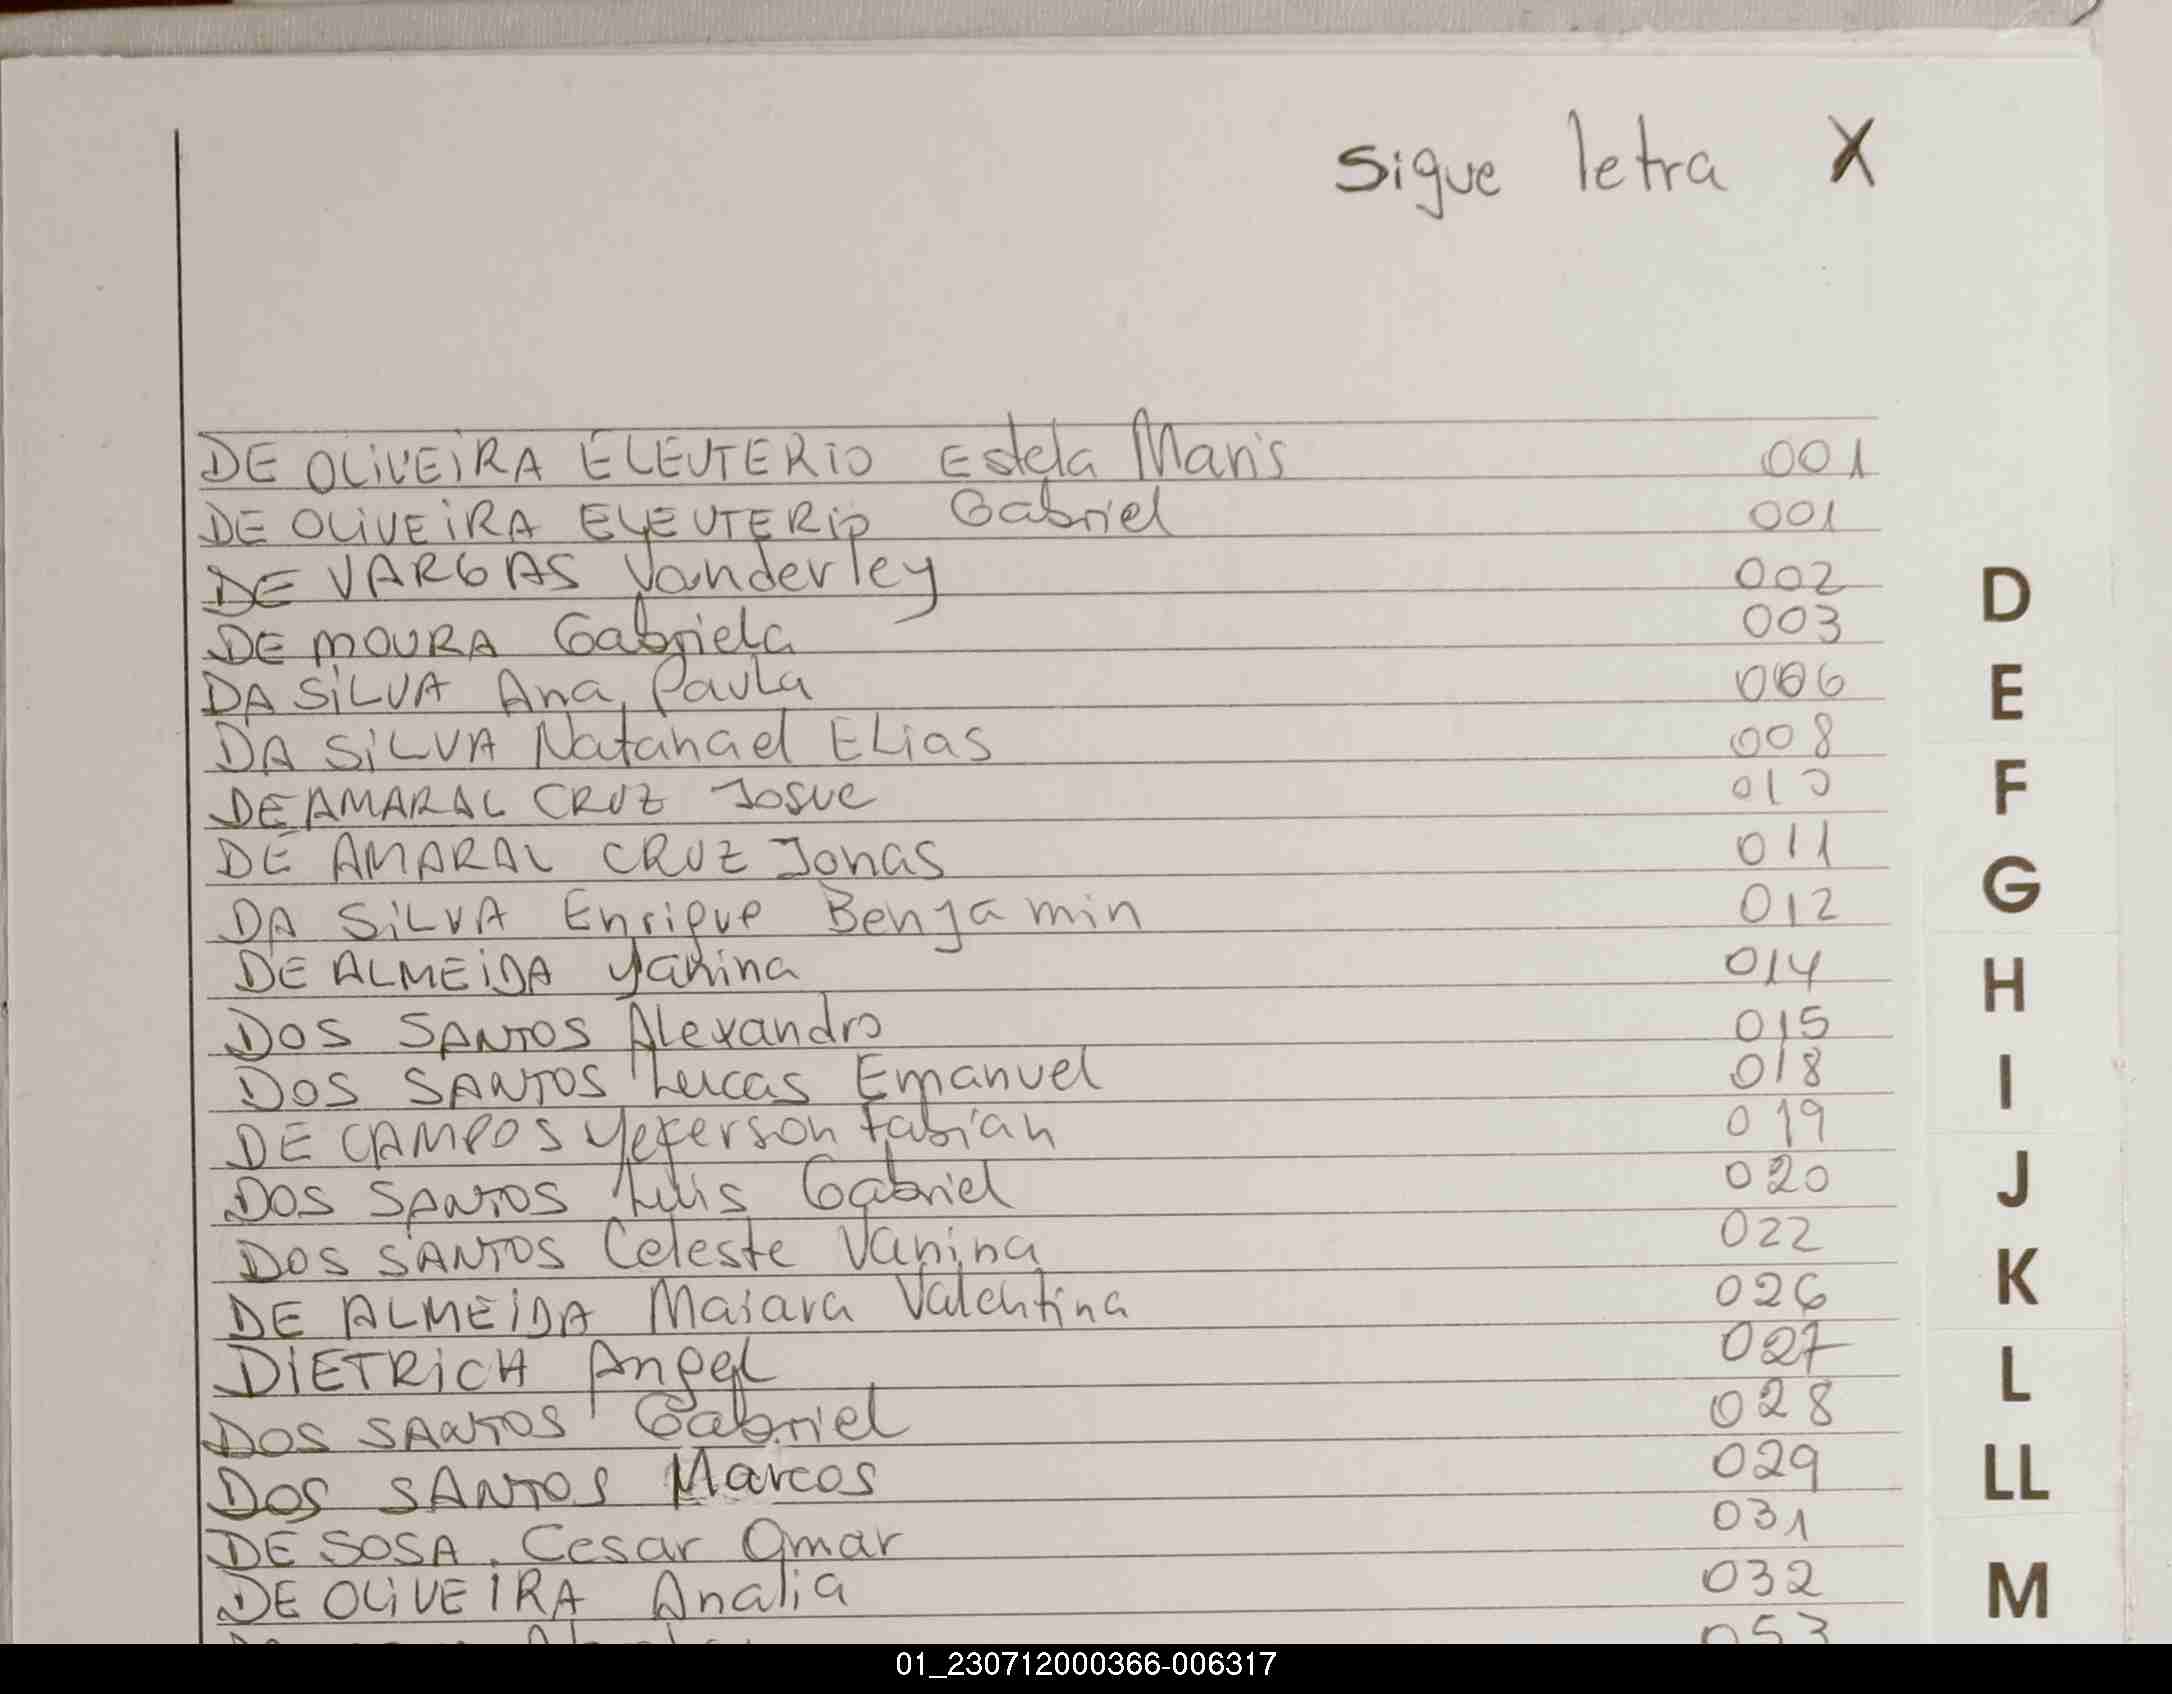 sigue letra X
DE OLIVEIRA ELEUTERIO Estela Maris 001
DE OLIVEIRA ELEUTERIO Gabriel 001
DE VARGAS Vanderley 002
DE MOURA Gabriela 003
DA SILVA Ana Paula 006
DA SILVA Natanael Elias 008
DE AMARAL CRUZ Josue 010
DE AMARAL CRUZ Jonas 011
DA SILVA Enrique Benjamin 012
DE ALMEIDA Yanina 014
DOS SANTOS Alexandro 015
DOS SANTOS Lucas Emanuel 018
DE CAMPOS Yeferson Fabián 019
DOS SANTOS Luis Gabriel 020
DOS SANTOS Celeste Vanina 022
DE ALMEIDA Maiara Valentina 026
DIETRICH Angel 027
DOS SANTOS Gabriel 028
DOS SANTOS Marcos 029
DE SOSA. Cesar Omar 031
DE OLIVEIRA Analia 032
053
D
E
F
G
H
I
J
K
L
LL
M
01_230712000366-006317